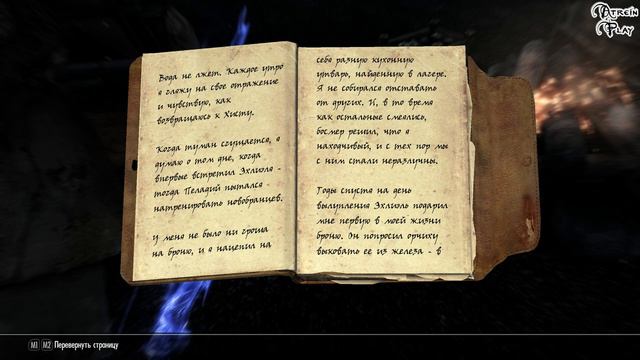 Вода не лжет. Каждое утро
я гляжу на свое отражение
и чувствую, как
возвращаюсь к Хисту.
Когда туман сгущается, я
думаю о том дне, когда
впервые встретил Эхлиоля -
тогда Пеладий пытался
натренировать новобранцев.
У меня не было ни гроша
на броню, и я нацепил на
себя разную кухонную
утварь, найденную в лагере.
Я не собирался отставать
от других. И, в то время
как остальные смеялись,
босмер решил, что я
находчивый, и с тех пор мы
с ним стали неразлучны.
Годы спустя на день
вылупления Эхлиоль подарил
мне первую в моей жизни
броню. Он попросил орчиху
выковать ее из железа - в
ATREIN
PLAY
M1 M2 Перевернуть страницу